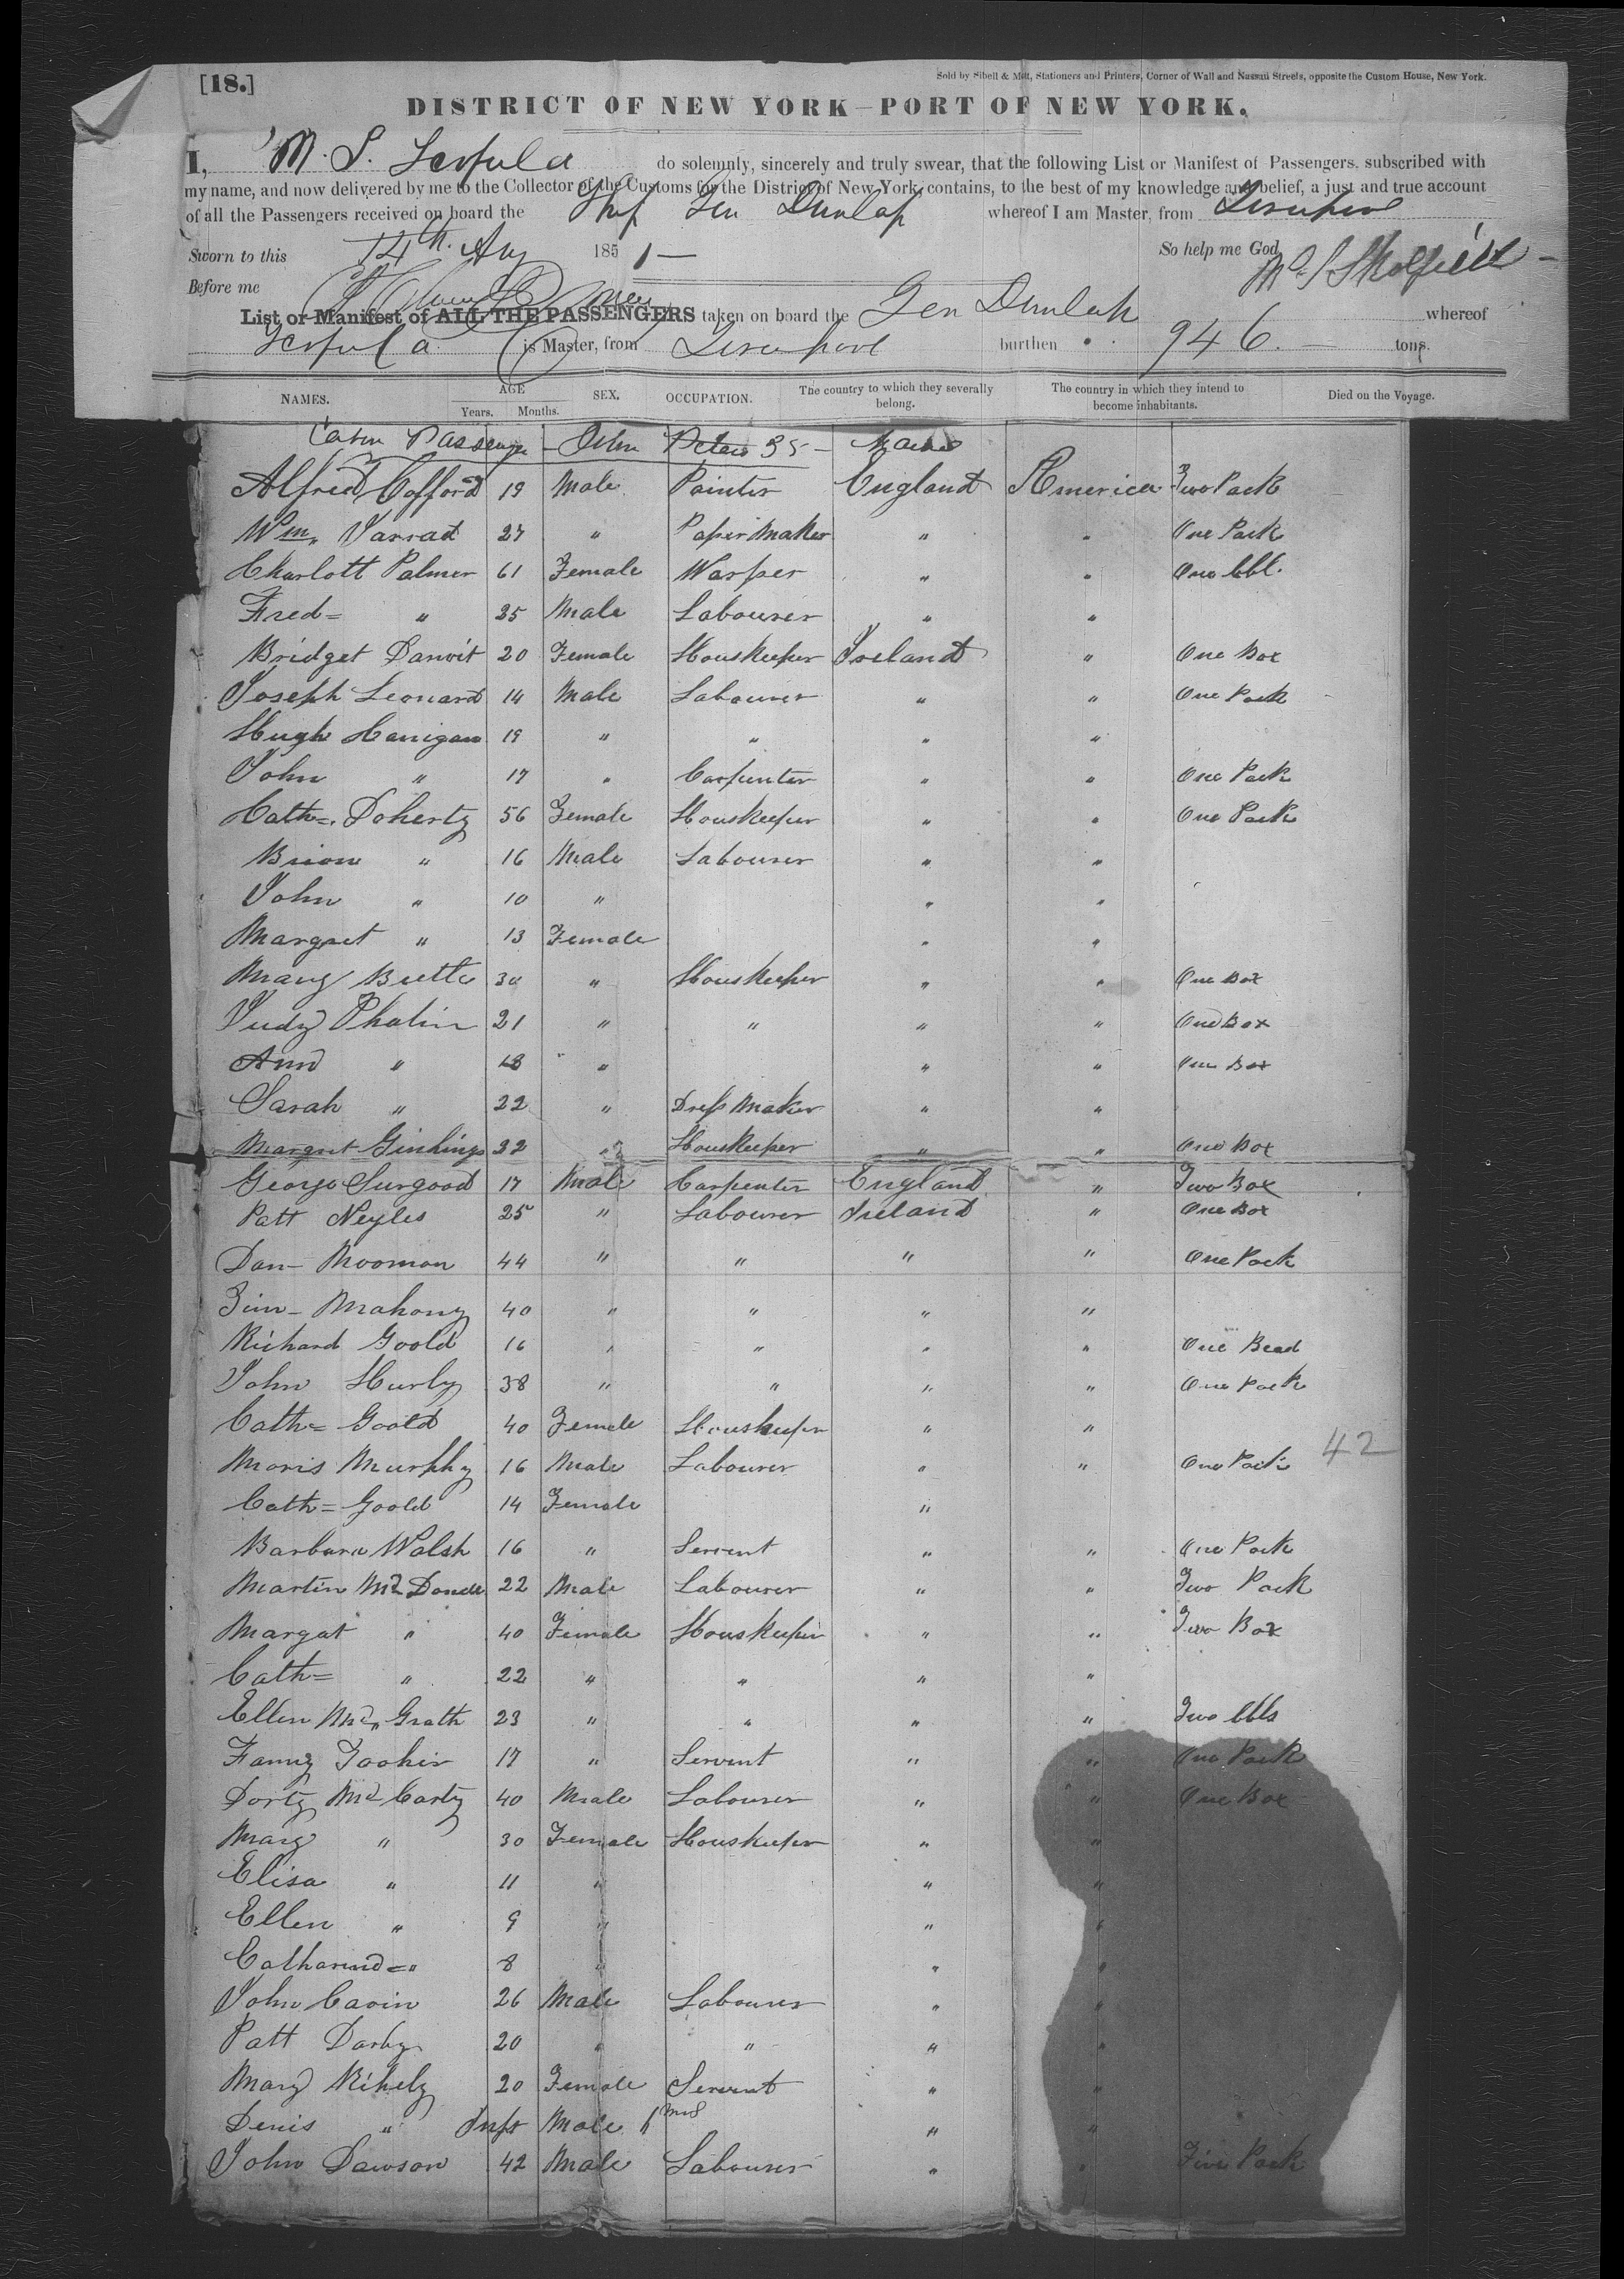 [18.]
Sold by Sibell & Mott, Stationers and Printers, Corner of Wall and Nassau Streets, opposite the Custom House, New York.
DISTRICT OF NEW YORK—PORT OF NEW YORK.
I, M. S. do solemnly, sincerely and truly swear, that the following List or Manifest of Passengers, subscribed with
my name, and now delivered by me to the Collector of the Customs for the District of New York, contains, to the best of my knowledge and belief, a just and true account
of all the Passengers received on board the Ship Gen Dunlap whereof I am Master, from Liverpool
Sworn to this 14th. Aug 1851 — So help me God
Before me
List or Manifest of ALL THE PASSENGERS taken on board the Gen Dunlap whereof
is Master, from Liverpool burthen 946. — tons.
NAMES. AGE Years. Months. SEX. OCCUPATION. The country to which they severally belong. The country in which they intend to become inhabitants. Died on the Voyage.
Cabin Passenger - John Peters 35 -
Alfred Cofford 19 Male Painter England America Two Pack
Wm. Jarrad 27 " Paper Maker " " One Pack
Charlott Palmer 61 Female Warper " " One bbl.
Fred= " 25 Male Labourer " "
Bridget 20 Female Houskeeper Ireland " One Box
Joseph Leonard 14 Male Labourer " " One Pack
Hugh Hanigan 19 " " " "
John " 17 " Carpenter " " One Pack
Cath=. Doherty 56 Female Houskeeper " " One Pack
Brion " 16 Male Labourer " "
John " 10 " " "
Margret " 13 Female " "
Mary 30 " Houskeeper " " One Box
Judy Phalin 21 " " " " One Box
Ann " 18 " " " One Box
Sarah " 22 " Dress Maker " "
Margret Ginkings 32 " Houskeeper " " One Box
George Surgood 17 Male Carpenter England " Two Box
Patt Neyles 25 " Labourer Ireland " One Box
Dan- Mooman 44 " " " " One Pack
Tim- Mahony 40 " " " "
Richard Goold 16 " " " " One
John Hurly 38 " " " " One Pack
Cath= Goold 40 Female Houskeeper " "
42
Moris Murphy 16 Male Labourer " " One Pack
Cath= Goold 14 Female "
Barbara Walsh 16 " Servent " " One Pack
Martin Mc Donell 22 Male Labourer " " Two Pack
Margat " 40 Female Houskeeper " " Two Box
Cath= " 22 " " " "
Ellen Mc Grath 23 " " " " Two bbls
Fanny 17 " Servent " " One Pack
Dorty Mc Carty 40 Male Labourer " " One Box
Mary " 30 Female Houskeeper " "
Elisa " 11 " " "
Ellen " 9 " " "
Catharine= " 8 " " "
John Cavin 26 Male Labourer " "
Patt Darby 20 " " " "
Mary Rihely 20 Female Servent " "
Denis " Inft Male 6 mos " "
John Dawson 42 Male Labourer " " Five Pack